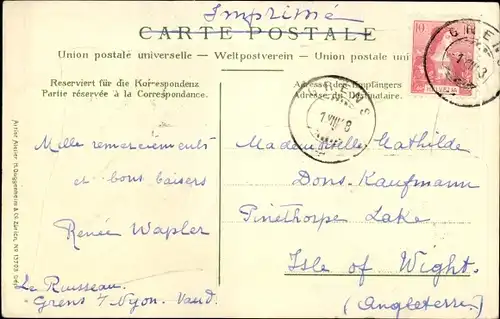 Imprimé
CARTE POSTALE
Union postale universelle — Weltpostverein — Union postale uni
Reserviert für die Korrespondenz
Partie réservée à la Correspondance.
Adresse des Empfängers
Adresse du Destinataire.
10
HELVETIA
GRENS
1 VIII 3
GRENS
1 VIII 8
Mille remerciements
et bons baisers
Renée Wapler
La Rousseau.
Grens s/ Nyon. Vaud.
Mademoiselle Mathilde
Dons-Kaufmann
Pinethorpe Lake
Isle of Wight.
(Angleterre.)
Guggenheim & Co. Zürich, No